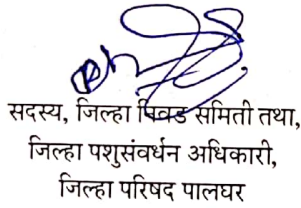 सदस्य, जिल्हा निवड समिती तथा,
जिल्हा पशुसंवर्धन अधिकारी,
जिल्हा परिषद पालघर